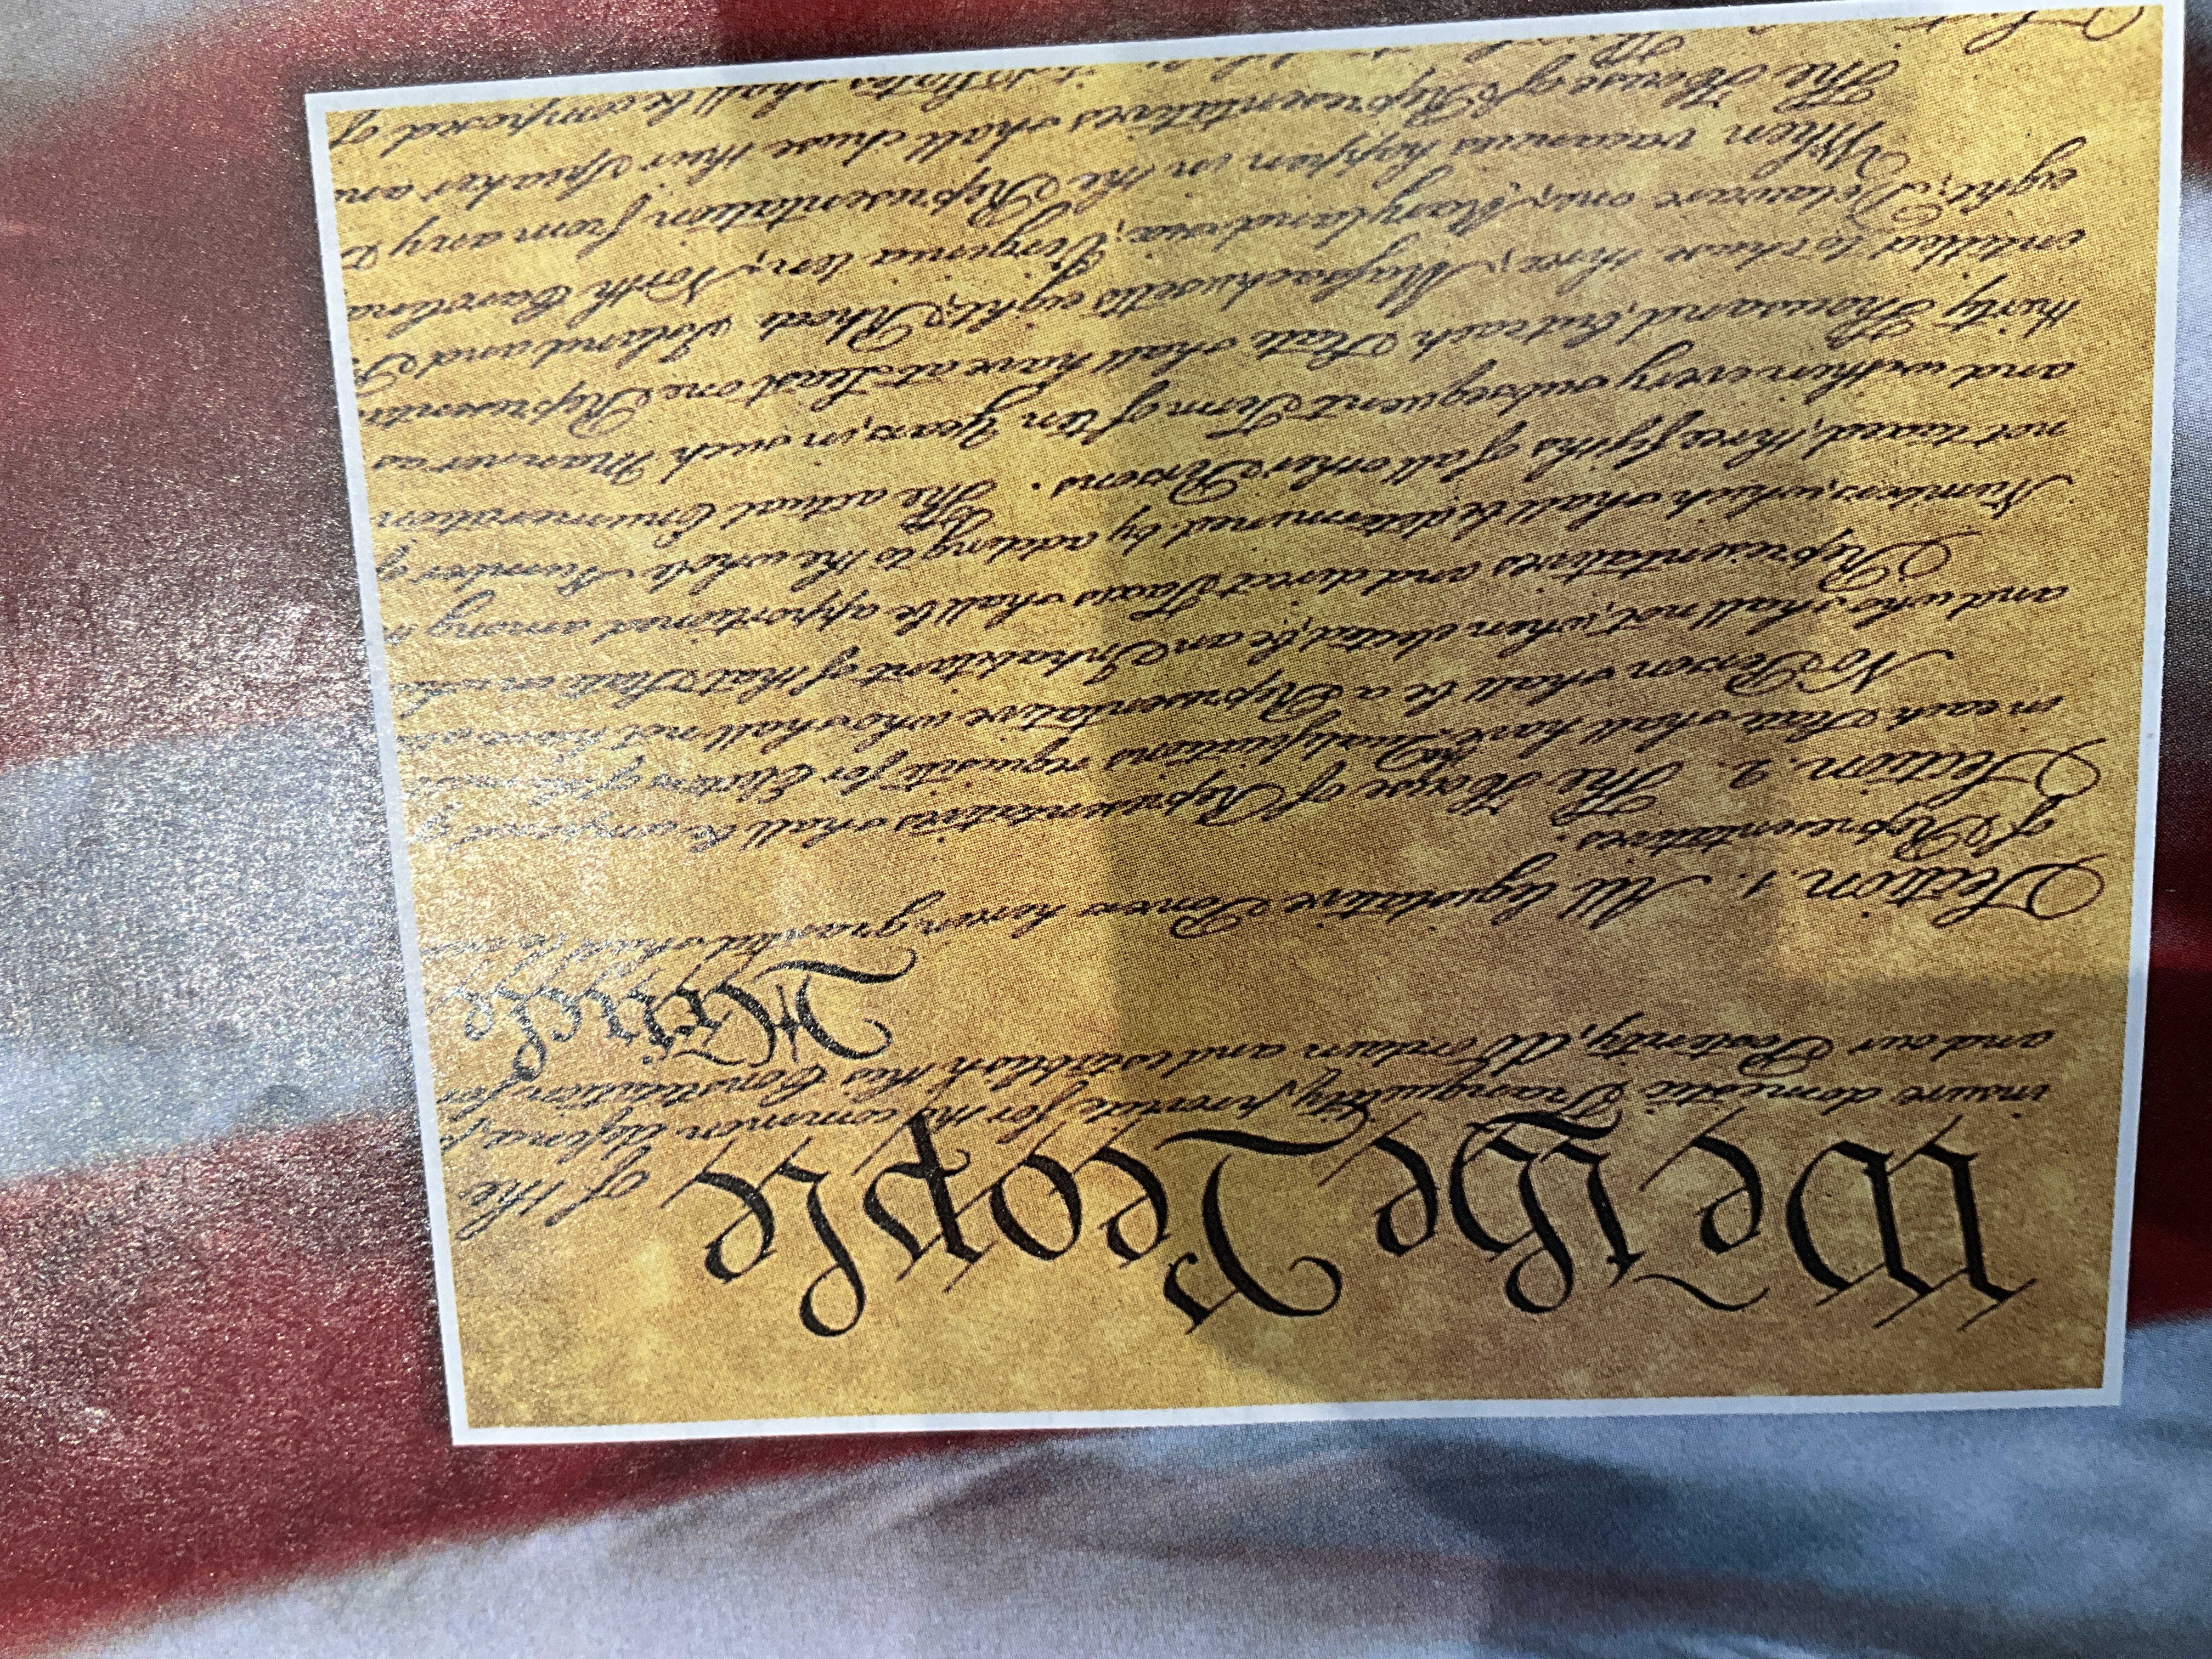 We the People of the
insure domestic Tranquility, provide for the common defence,
and our Posterity, do ordain and establish this Constitution for
Article
Section. 1. All legislative Powers herein granted shall be
of Representatives.
Section. 2. The House of Representatives shall be composed
in each State shall have Qualifications requisite for Electors of the
No Person shall be a Representative who shall not have
and who shall not, when elected, be an Inhabitant of that State in
Representatives and direct Taxes shall be apportioned among
Numbers, which shall be determined by adding to the whole Number of
not taxed, three fifths of all other Persons. The actual Enumeration
and within every subsequent Term of ten Years, in such Manner as
thirty Thousand, but each State shall have at Least one
entitled to chuse three, Massachusetts eight, Rhode Island and
eight, Delaware one, Maryland six, Virginia ten, North Carolina
When vacancies happen in the Representation from any
The House of Representatives shall chuse their Speaker
States shall be composed of